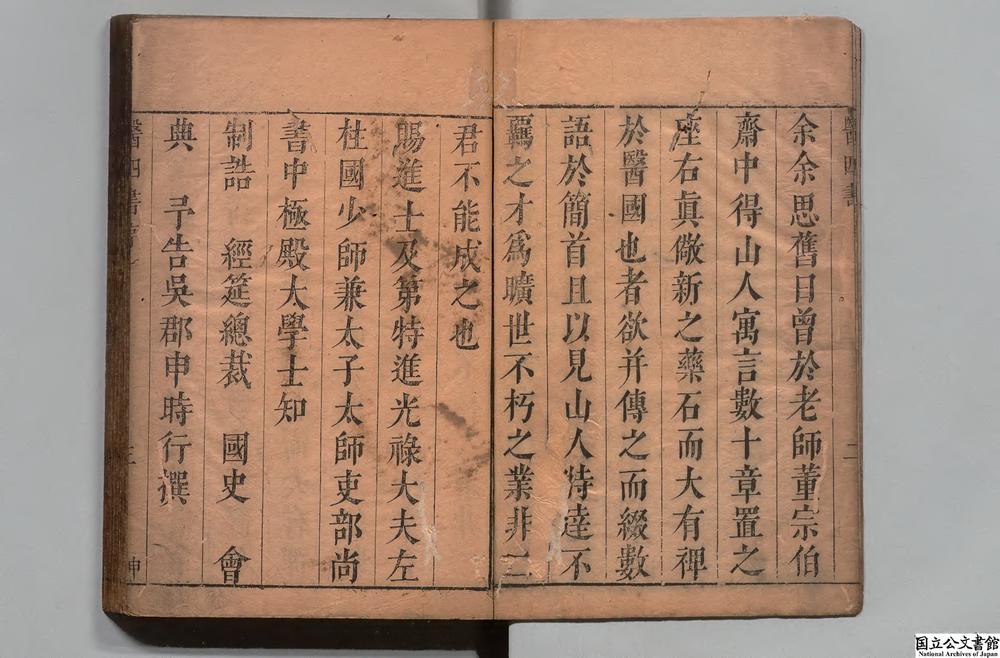 余余思舊日曾於老師董宗伯
齋中得山人寓言數十章置之
座右眞儆新之藥石而大有裨
於醫國也者欲并傳之而綴數
語於簡首且以見山人特達不
羈之才爲曠世不朽之業非二
醫四書
二
君不能成之也
賜進士及第特進光祿大夫左
柱國少師兼太子太師吏部尚
書中極殿大學士知
制誥　經筵總裁　國史　會
典　予告吳郡申時行撰
醫四書序
三
申
国立公文書館
National Archives of Japan